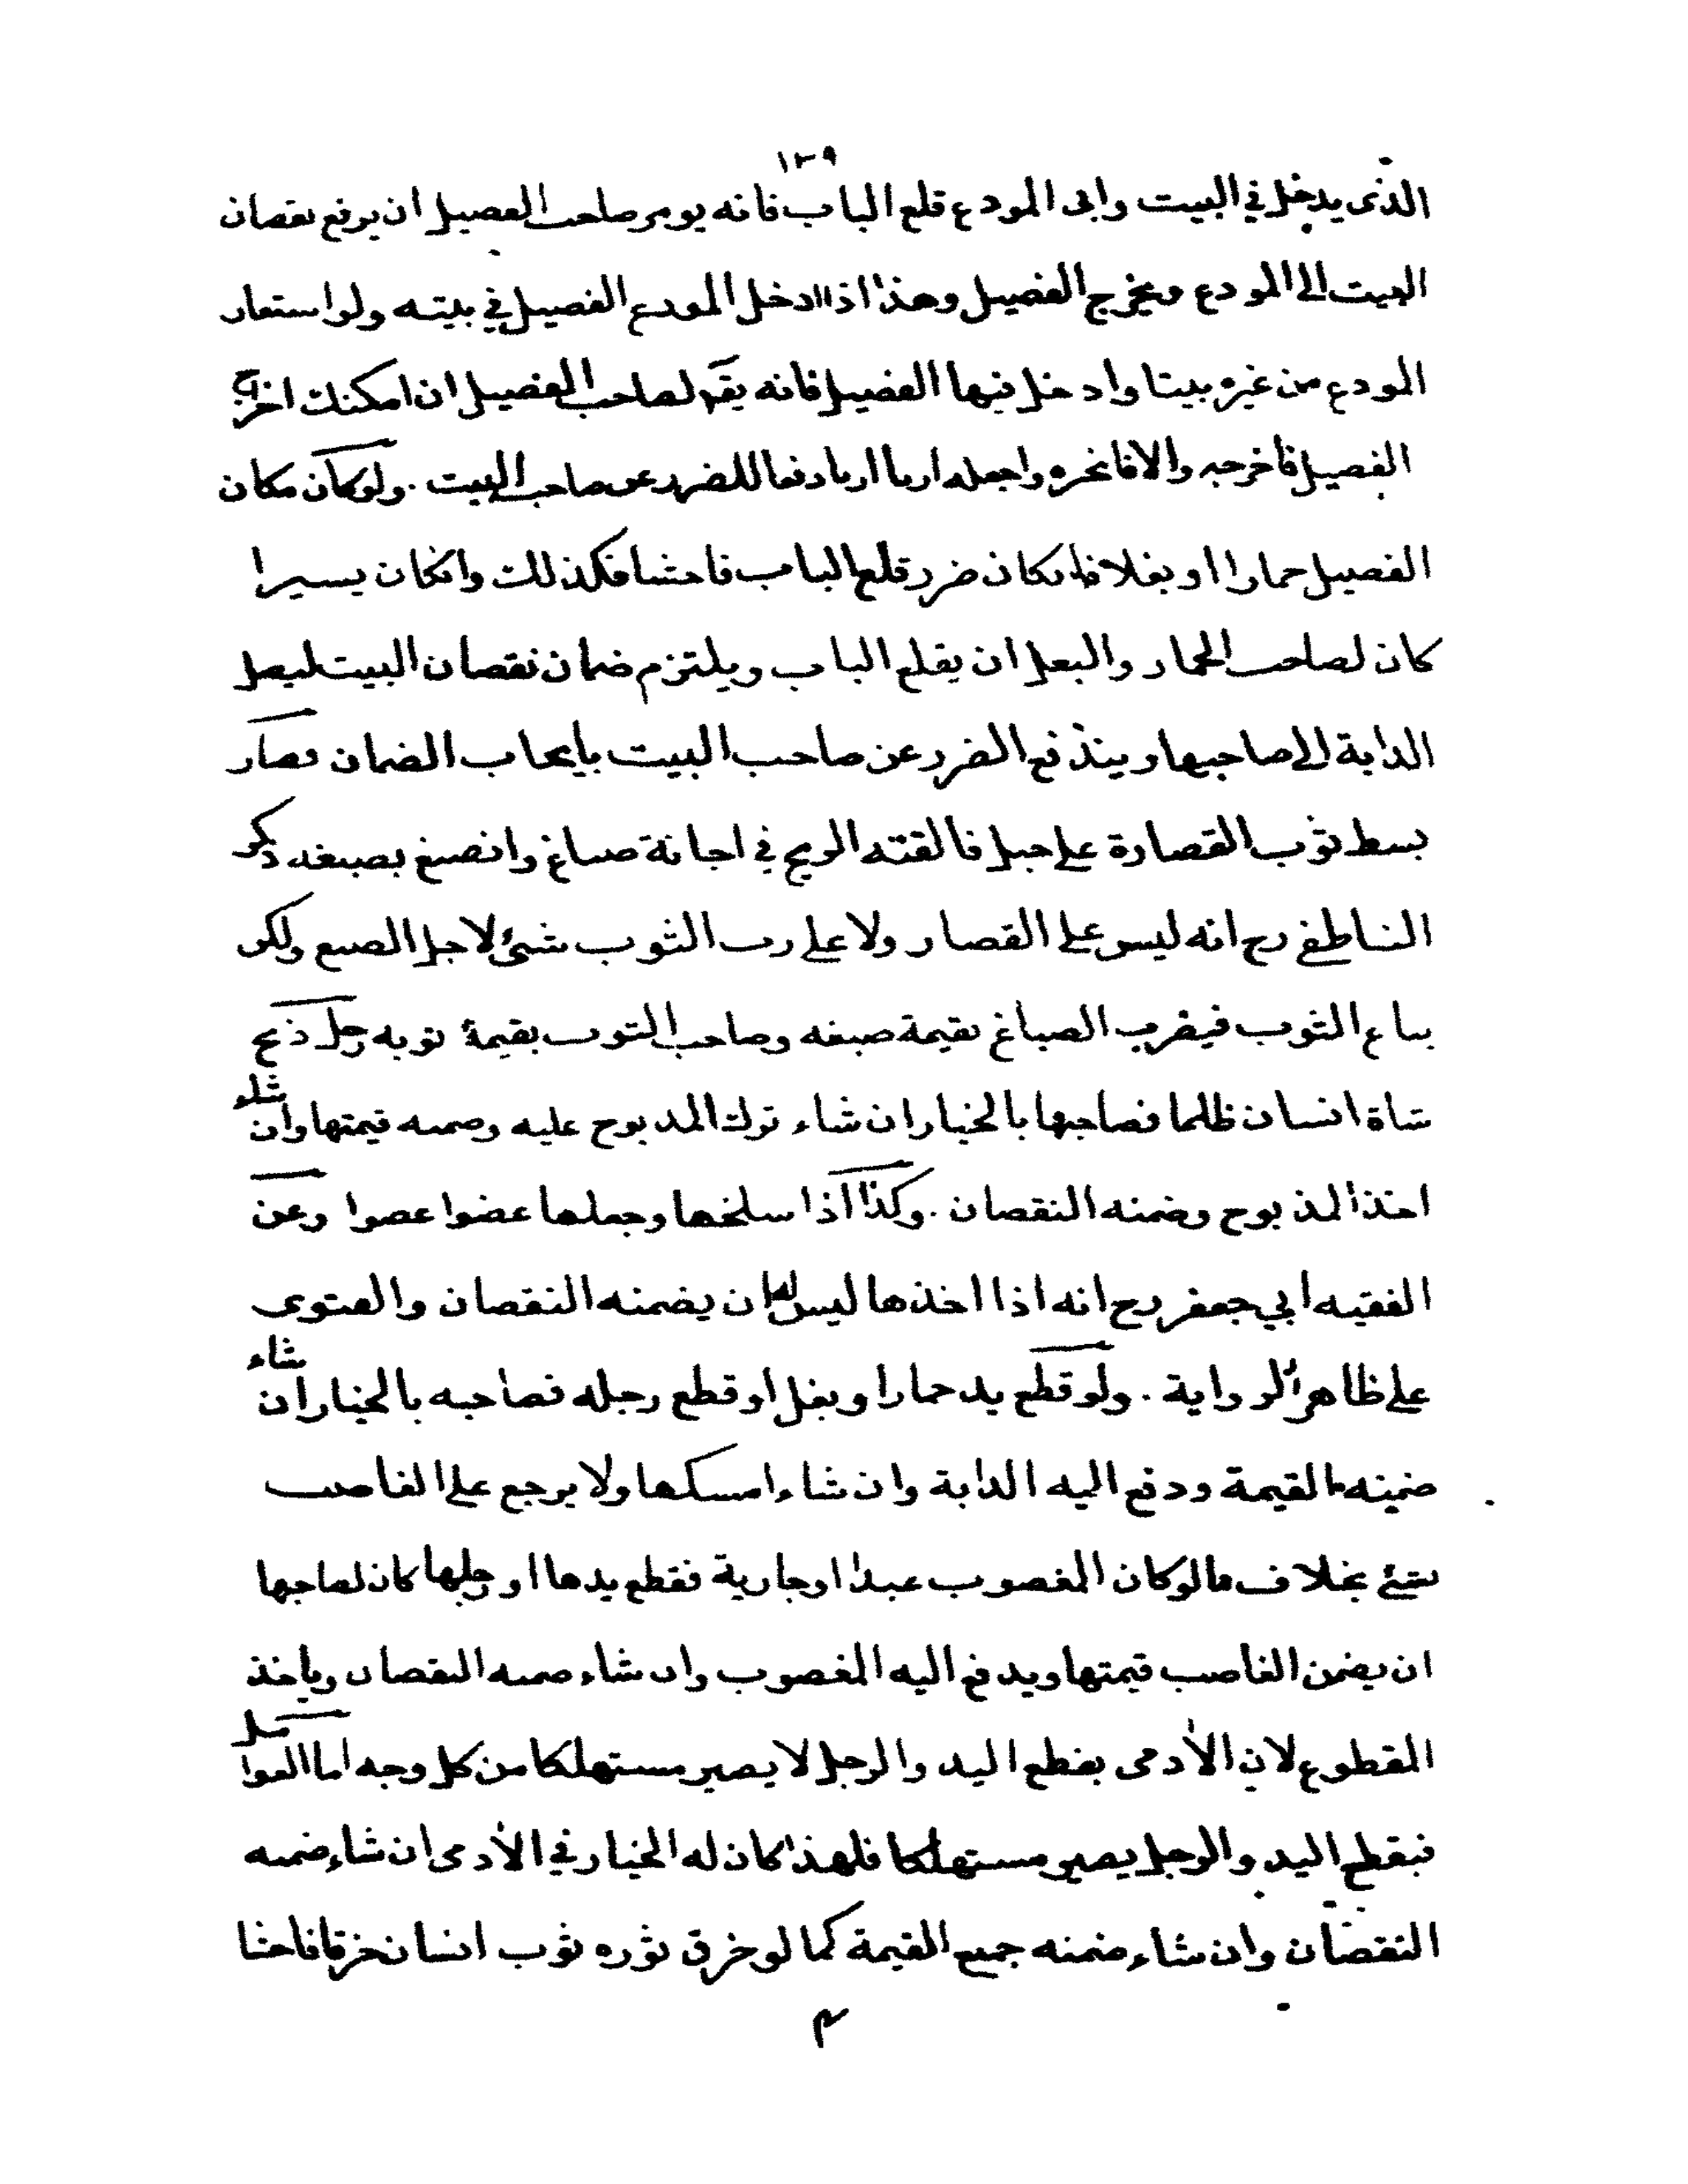 ١٣٩
الذى يدخل في البيت وابى المودع قلع الباب فانه يومر صاحب الفصيل ان يرفع نقصان
البيت الى المودع ويخرج الفصيل وهذا اذا ادخل المودع الفصيل في بيته ولو استعار
المودع من غيره بيتا وادخل فيها الفصيل فانه يقم لصاحب الفصيل ان امكنك اخراج
الفصيل فاخرجه والا فانحره واجعله اربا اربا دفعا للضرر عن صاحب البيت . ولو كان مكان
الفصيل حمارا او بغلا فان كان ضرر قلع الباب فاحشا فكذلك وان كان يسيرا
كان لصاحب الحمار والبغل ان يقلع الباب ويلتزم ضمان نقصان البيت ليصل
الدابة الى صاحبها ويندفع الضرر عن صاحب البيت بايجاب الضمان قصار
بسط ثوب القصارة على حبل فالقته الريح في اجانة صباغ وانصبغ بصبغه ذكر
الناطفي رح انه ليس على القصار ولا على رب الثوب شئ لاجل الصبغ ولكن
يباع الثوب فيضرب الصباغ بقيمة صبغه وصاحب الثوب بقيمة ثوبه رجل ذبح
شاة انسان ظلما فصاحبها بالخيار ان شاء ترك المذبوح عليه وضمنه قيمتها وان شاء
اخذ المذبوح وضمنه النقصان . وكذا اذا سلخها وجعلها عضوا عضوا وعن
الفقيه ابي جعفر رح انه اذا اخذها ليس له ان يضمنه النقصان والفتوى
على ظاهر الرواية . ولو قطع يد حمار او بغل او قطع رجله فصاحبه بالخيار ان شاء
ضمنه القيمة ودفع اليه الدابة وان شاء امسكها ولا يرجع على الغاصب
بشئ بخلاف ما لو كان المغصوب عبدا او جارية فقطع يدها او رجلها كان لصاحبها
ان يضمن الغاصب قيمتها ويدفع اليه المغصوب وان شاء ضمنه النقصان وياخذ
المقطوع لان الادمى بقطع اليد والرجل لا يصير مستهلكا من كل وجه اما العوامل
فبقطع اليد والرجل يصير مستهلكا فلهذا كان له الخيار في الادمى ان شاء ضمنه
النقصان وان شاء ضمنه جميع القيمة كما لو خرق ثوره ثوب انسان خرقا فاحشا